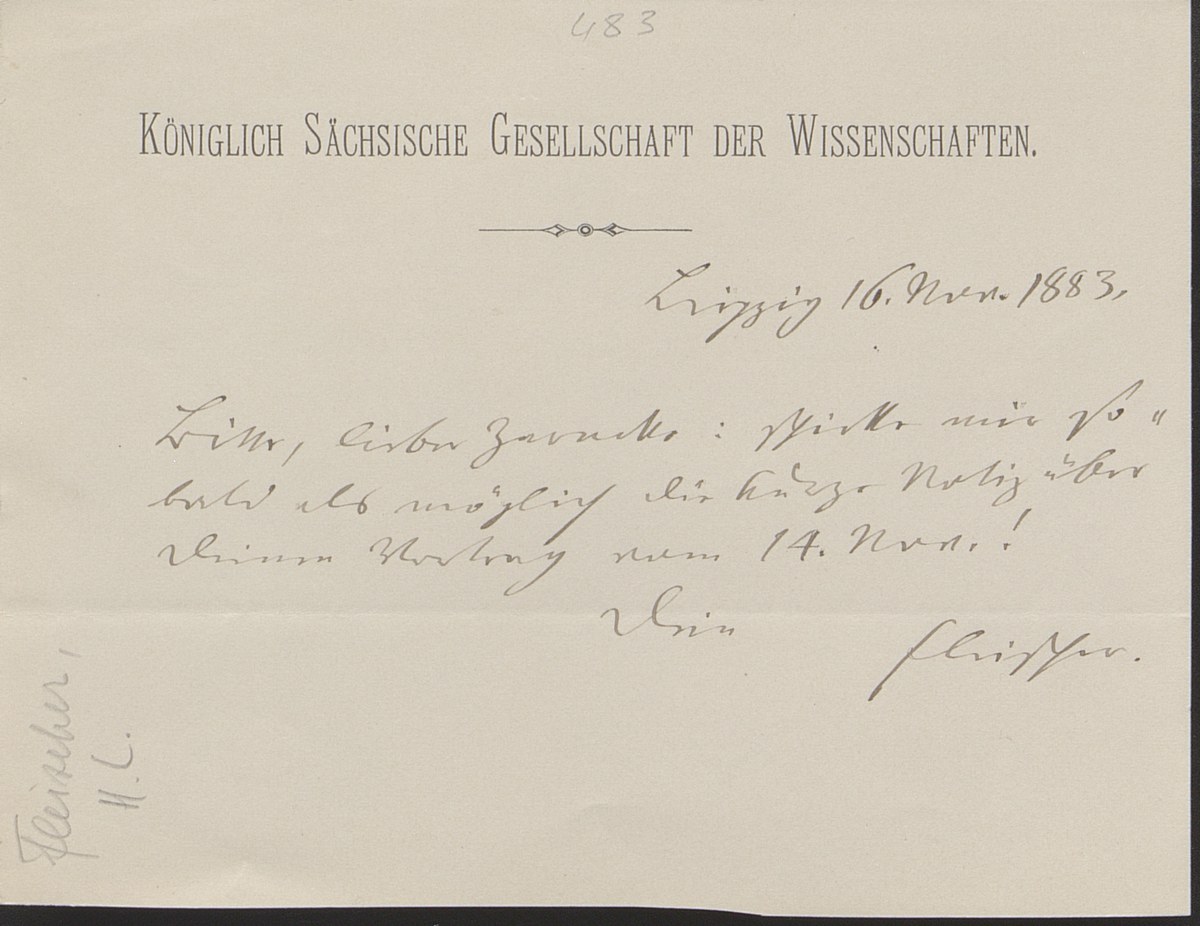 483
KÖNIGLICH SÄCHSISCHE GESELLSCHAFT DER WISSENSCHAFTEN.
Leipzig 16. Nov. 1883.
Bitte, lieber Zarncke: schicke mir so-
bald als möglich die kurze Notiz über
Deinen Vortrag vom 14. Nov.!
Dein
Fleischer.
Fleischer,
H. L.